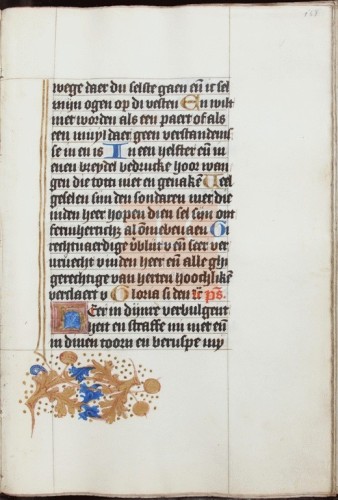 wege daer du selste gaen en̄ ic sel
mijn ogen op di vesten En wilt
niet worden als een paert of als
een muyl daer geen verstandenis
se in en is In een helfter en̄ in
enen breydel bedrucke hoor wan
gen die tot di niet en genakē Veel
geselen sijn den sondaren mer die
inden heer hopen dien sel sijn ont
fermherticħ al om bevaen O
rechtuaerdige verblijt v en̄ seer ver
vruecht v inden heer en̄ alle ghi
gerechtige van herten hoochlikē
verclaert v Gloria si den ps.
Heer in dijnre verbulgent
heit en straffe mi niet en̄
in dinen toorn en berispe my